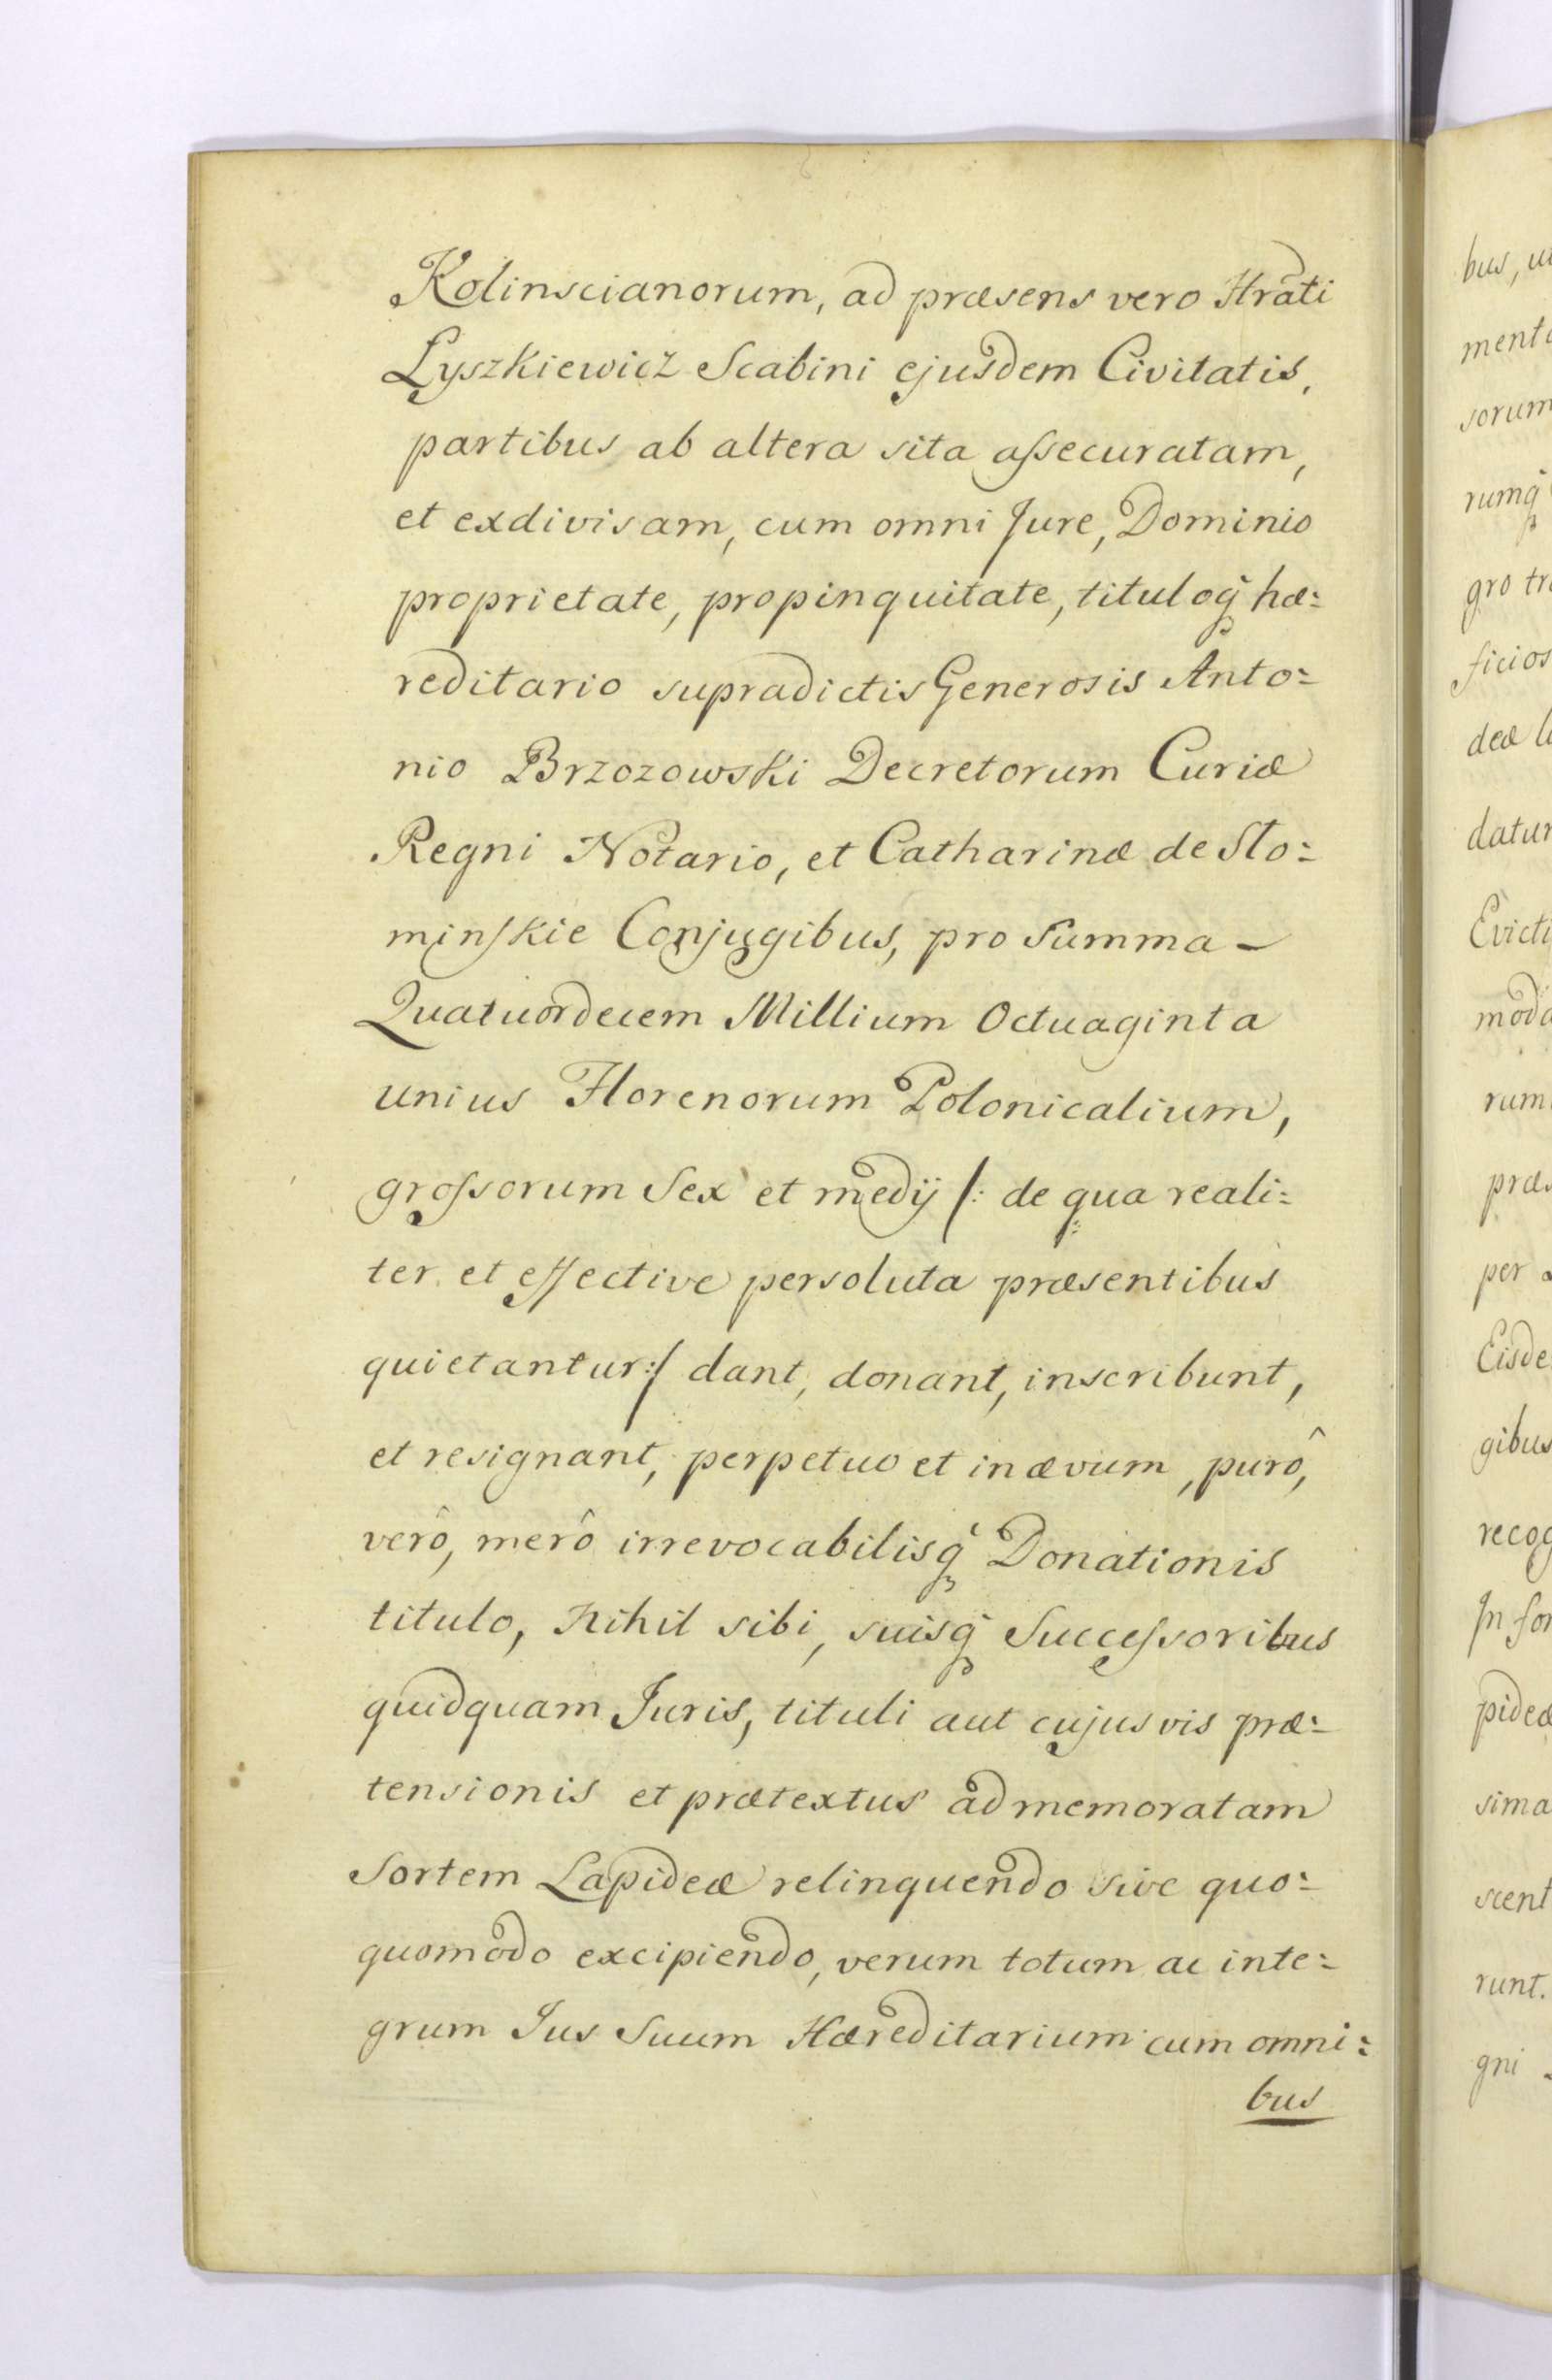 Kolinscianorum, ad præsens vero Hrãti
Lyszkiewicz Scabini ejusdem Civitatis,
partibus ab altera sita aſsecuratam,
et exdivisam, cum omni Jure, Dominio
proprietate, propinquitate, tituloq̃ hæ:
reditario supradictis Generosis Anto:
nio Brzozowski Decretorum Curiæ
Regni Notario, et Catharinæ de Sło:
minſkie Conjugibus, pro Summa –
Quatuordecem Millium Octuaginta
unius Florenorum Polonicalium,
groſsorum Sex et medij /: de qua reali:
ter et effective persoluta præsentibus
quietantur :/ dant, donant, inscribunt,
et resignant, perpetuo et in ævum, purô,
verô, merô irrevocabilisq̃ Donationis
titulo, Nihil sibi, suisq̃ Succeſsoribus
quidquam Juris, tituli aut cujusvis præ:
tensionis et prætextus ad memoratam
Sortem Lapideæ relinquendo sive quo:
quomodo excipiendo, verum totum ac inte:
grum Jus Suum Hæreditarium cum omni:
bus
bus,
ment
sorum
rumq̃
gro tr
ficios
deæ
datur
Evicti
mod
rum
præ
per
Eisde
gibus
recog
In for
pideæ
sima
scent
runt.
gni